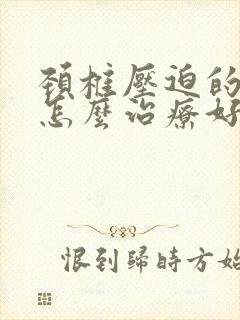 頚椎壓迫的
怎麼治療好
恨到歸時方始